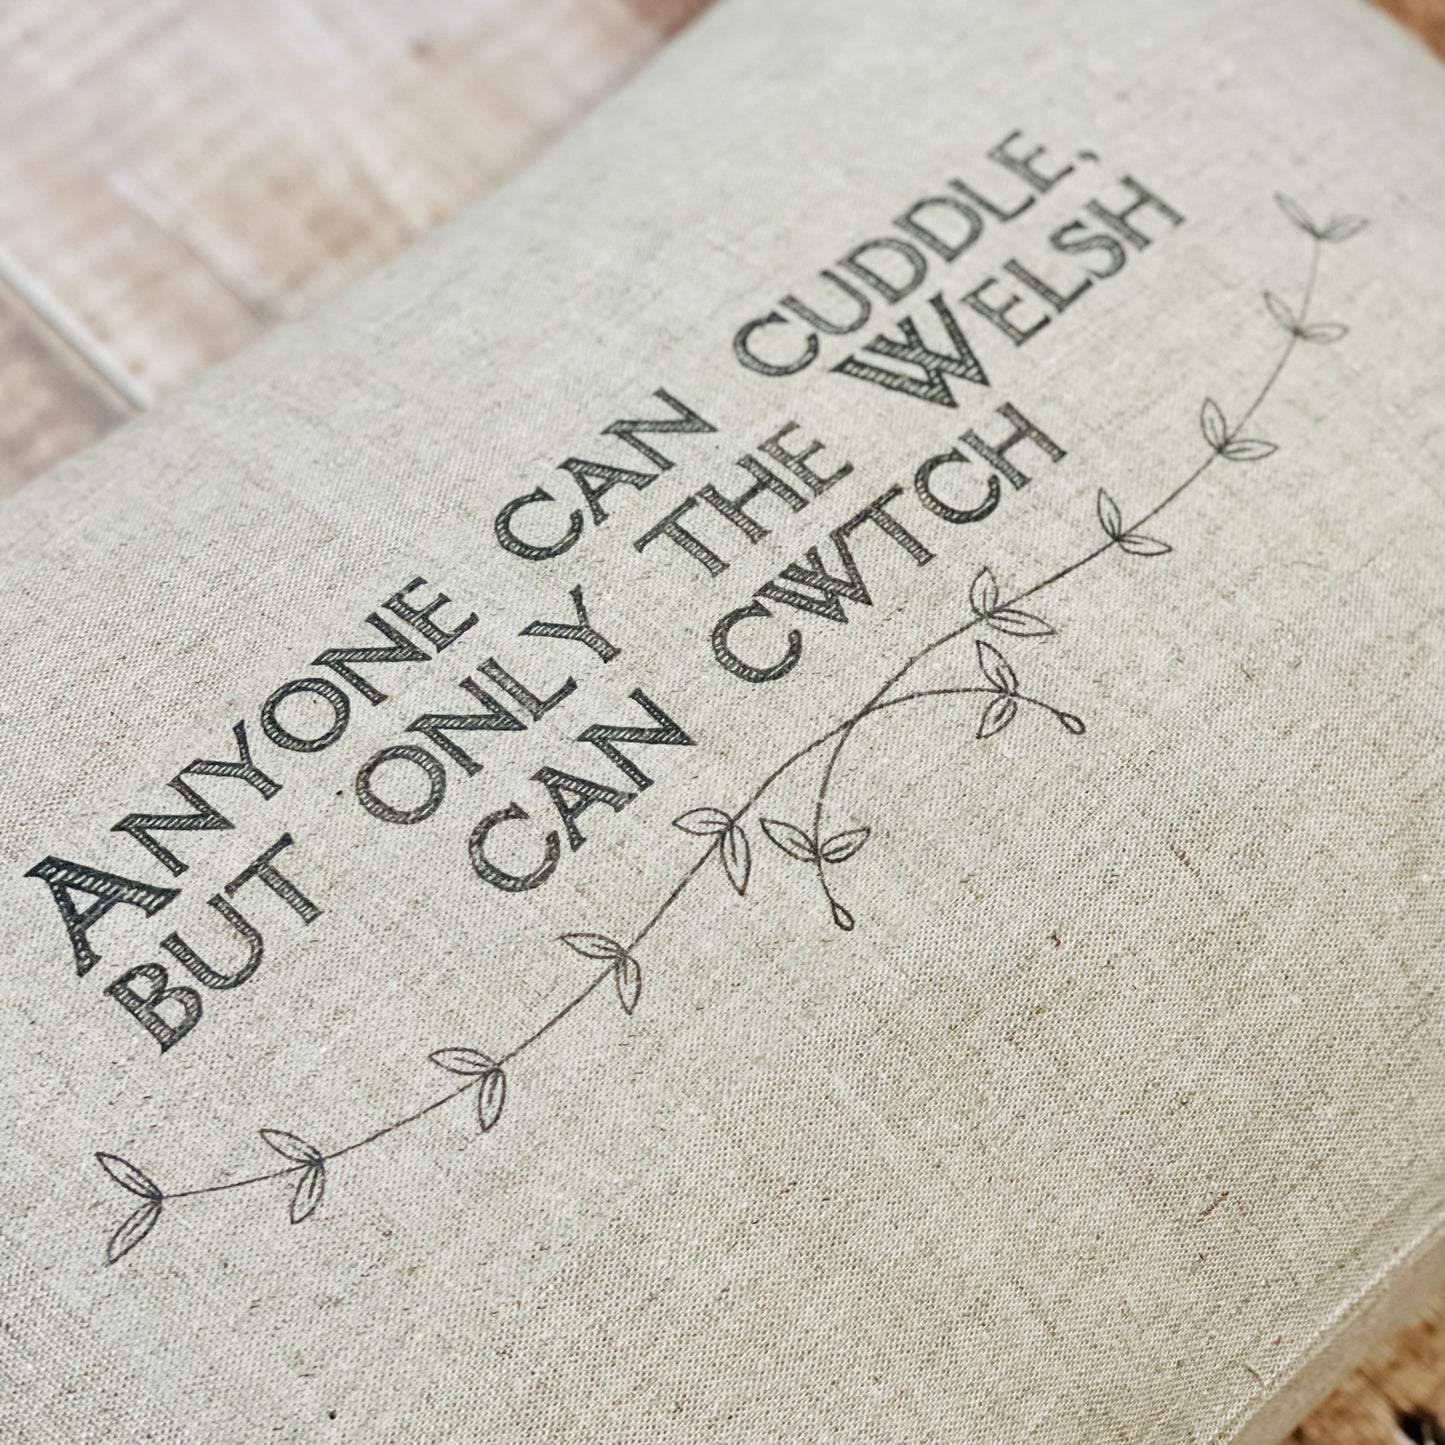 ANYONE CAN CUDDLE,
BUT ONLY THE WELSH
CAN CWTCH